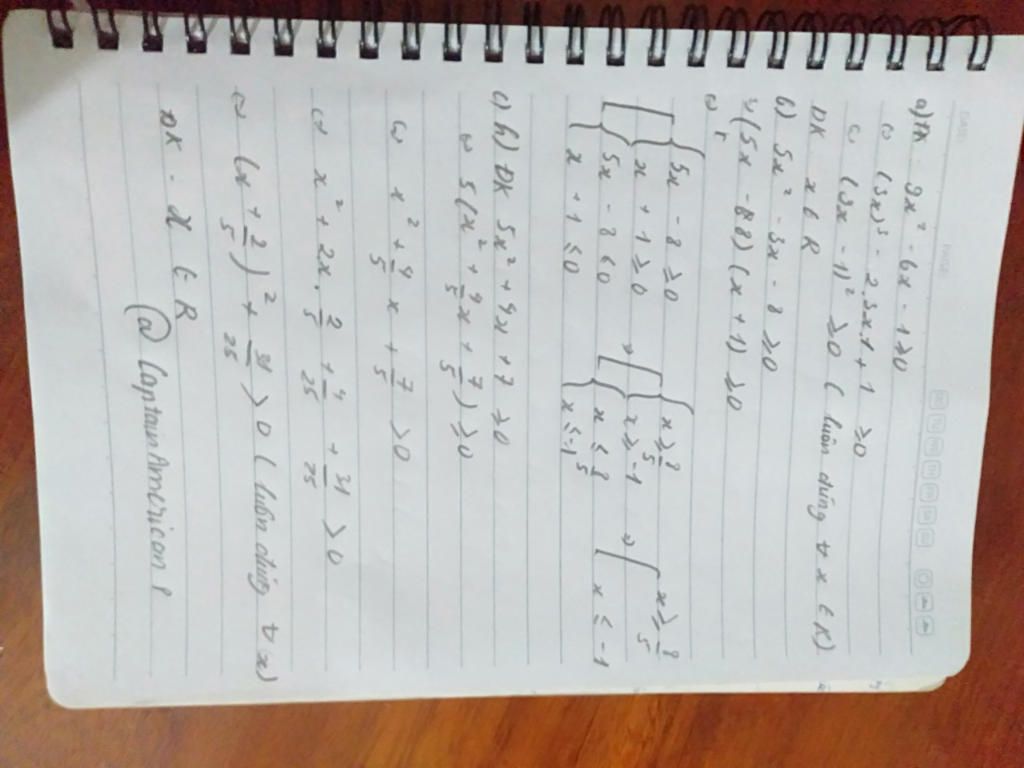 DATE:
PAGE:
a) ĐK 9x² - 6x - 1 ≥ 0
⇔ (3x)² - 2.3x.1 + 1 ≥ 0
⇔ (3x - 1)² ≥ 0 ( luôn đúng ∀ x ∈ R)
ĐK x ∈ R
b) 5x² - 3x - 8 ≥ 0
⇔ (5x - 88) (x + 1) ≥ 0
⇔
5x - 8 ≥ 0 x ≥ 8/5
x + 1 ≥ 0 ⇔ x ≥ -1 ⇔ x ≥ 8/5
5x - 8 ≤ 0 x ≤ 8/5 x ≤ -1
x + 1 ≤ 0 x ≤ -1
c) h) ĐK 5x² + 4x + 7 ≥ 0
⇔ 5(x² + 4/5 x + 7/5) ≥ 0
⇔ x² + 4/5 x + 7/5 > 0
⇔ x² + 2x . 2/5 + 4/25 + 31/25 > 0
⇔ (x + 2/5)² + 31/25 > 0 ( luôn đúng ∀ x)
ĐK - x ∈ R
@ Captain American 8